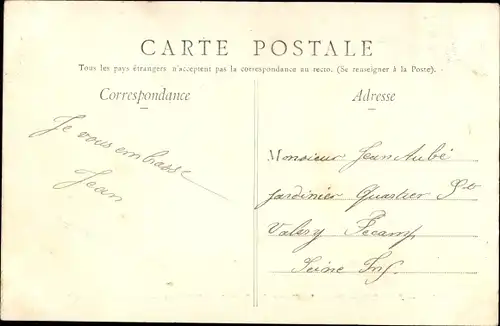 CARTE POSTALE
Tous les pays étrangers n'acceptent pas la correspondance au recto. (Se renseigner à la Poste).
Correspondance
Adresse
Je vous embrasse
Jean
Monsieur Jean Aubé
Jardinier Quartier St
Valery Fécamp
Seine Inf.